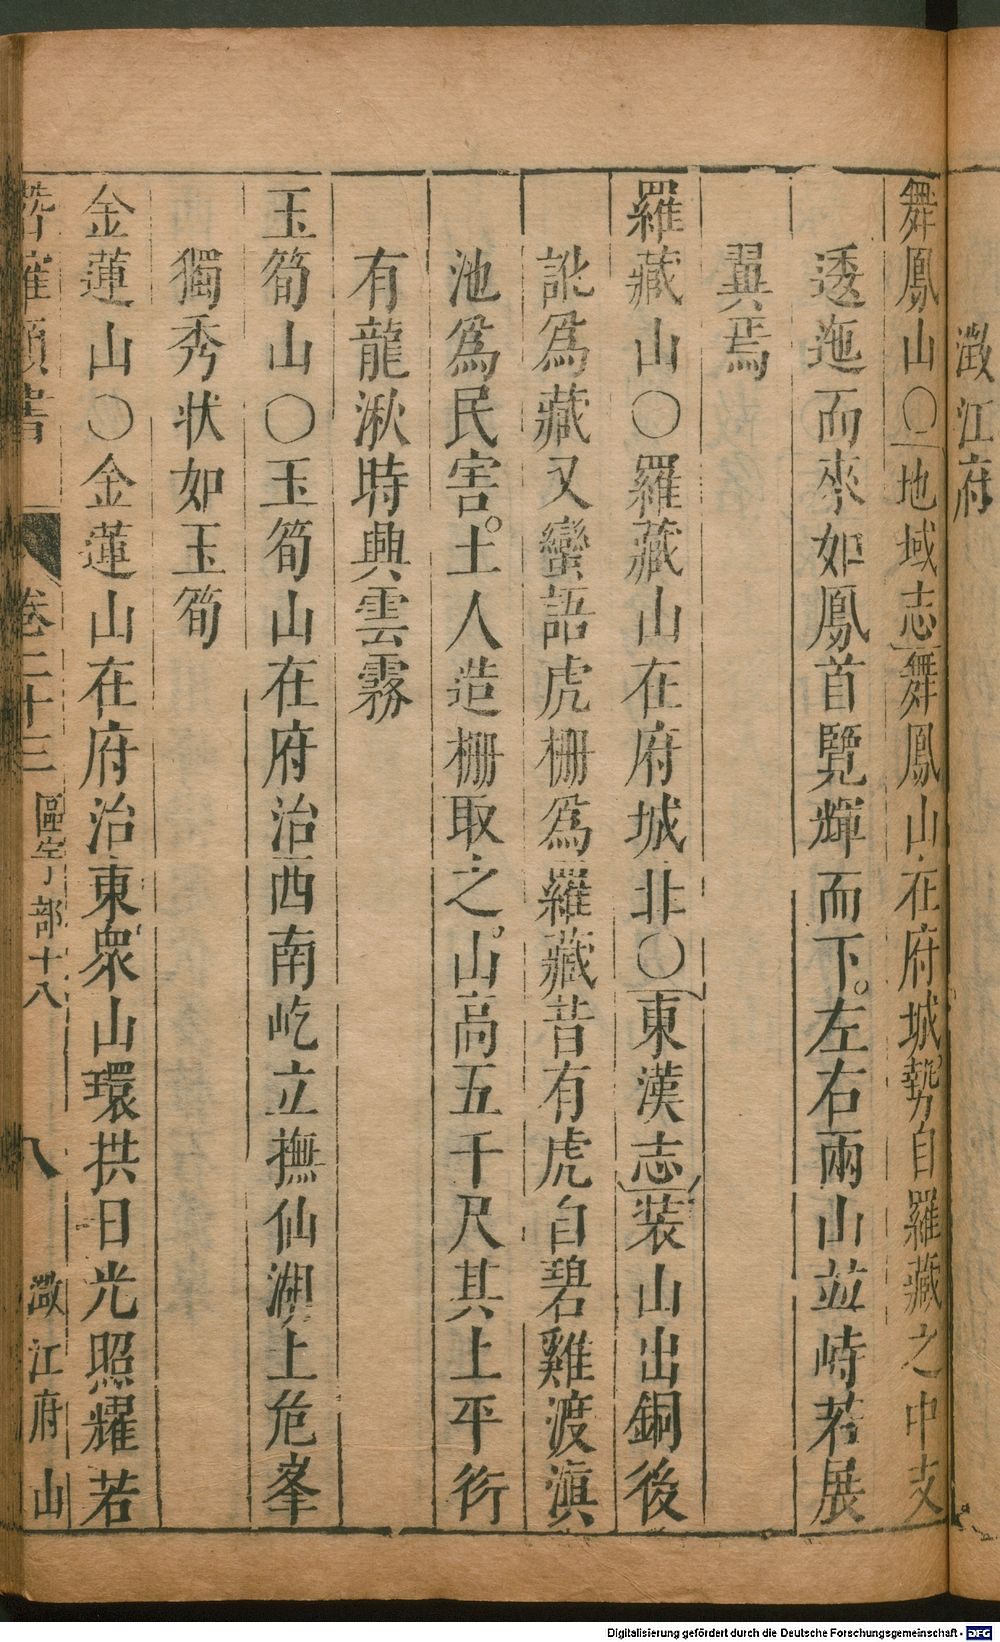 澂江府
舞鳳山〇地域志舞鳳山在府城勢自羅藏之中支
透迤而來如鳳首覽輝而下。左右兩山並峙若展
翼焉
羅藏山〇羅藏山在府城北〇東漢志装山出銅後
訛爲藏又蠻語虎柵爲羅藏昔有虎自碧雞渡滇
池爲民害。土人造柵取之。山高五千尺其上平衍
有龍湫時興雲霧
玉筍山〇玉筍山在府治西南屹立撫仙湖上危峯
獨秀状如玉筍
金蓮山〇金蓮山在府治東衆山環拱日光照耀若
卷二十三 區宇部十八 八 澂江府 山
Digitalisierung gefördert durch die Deutsche Forschungsgemeinschaft - DFG